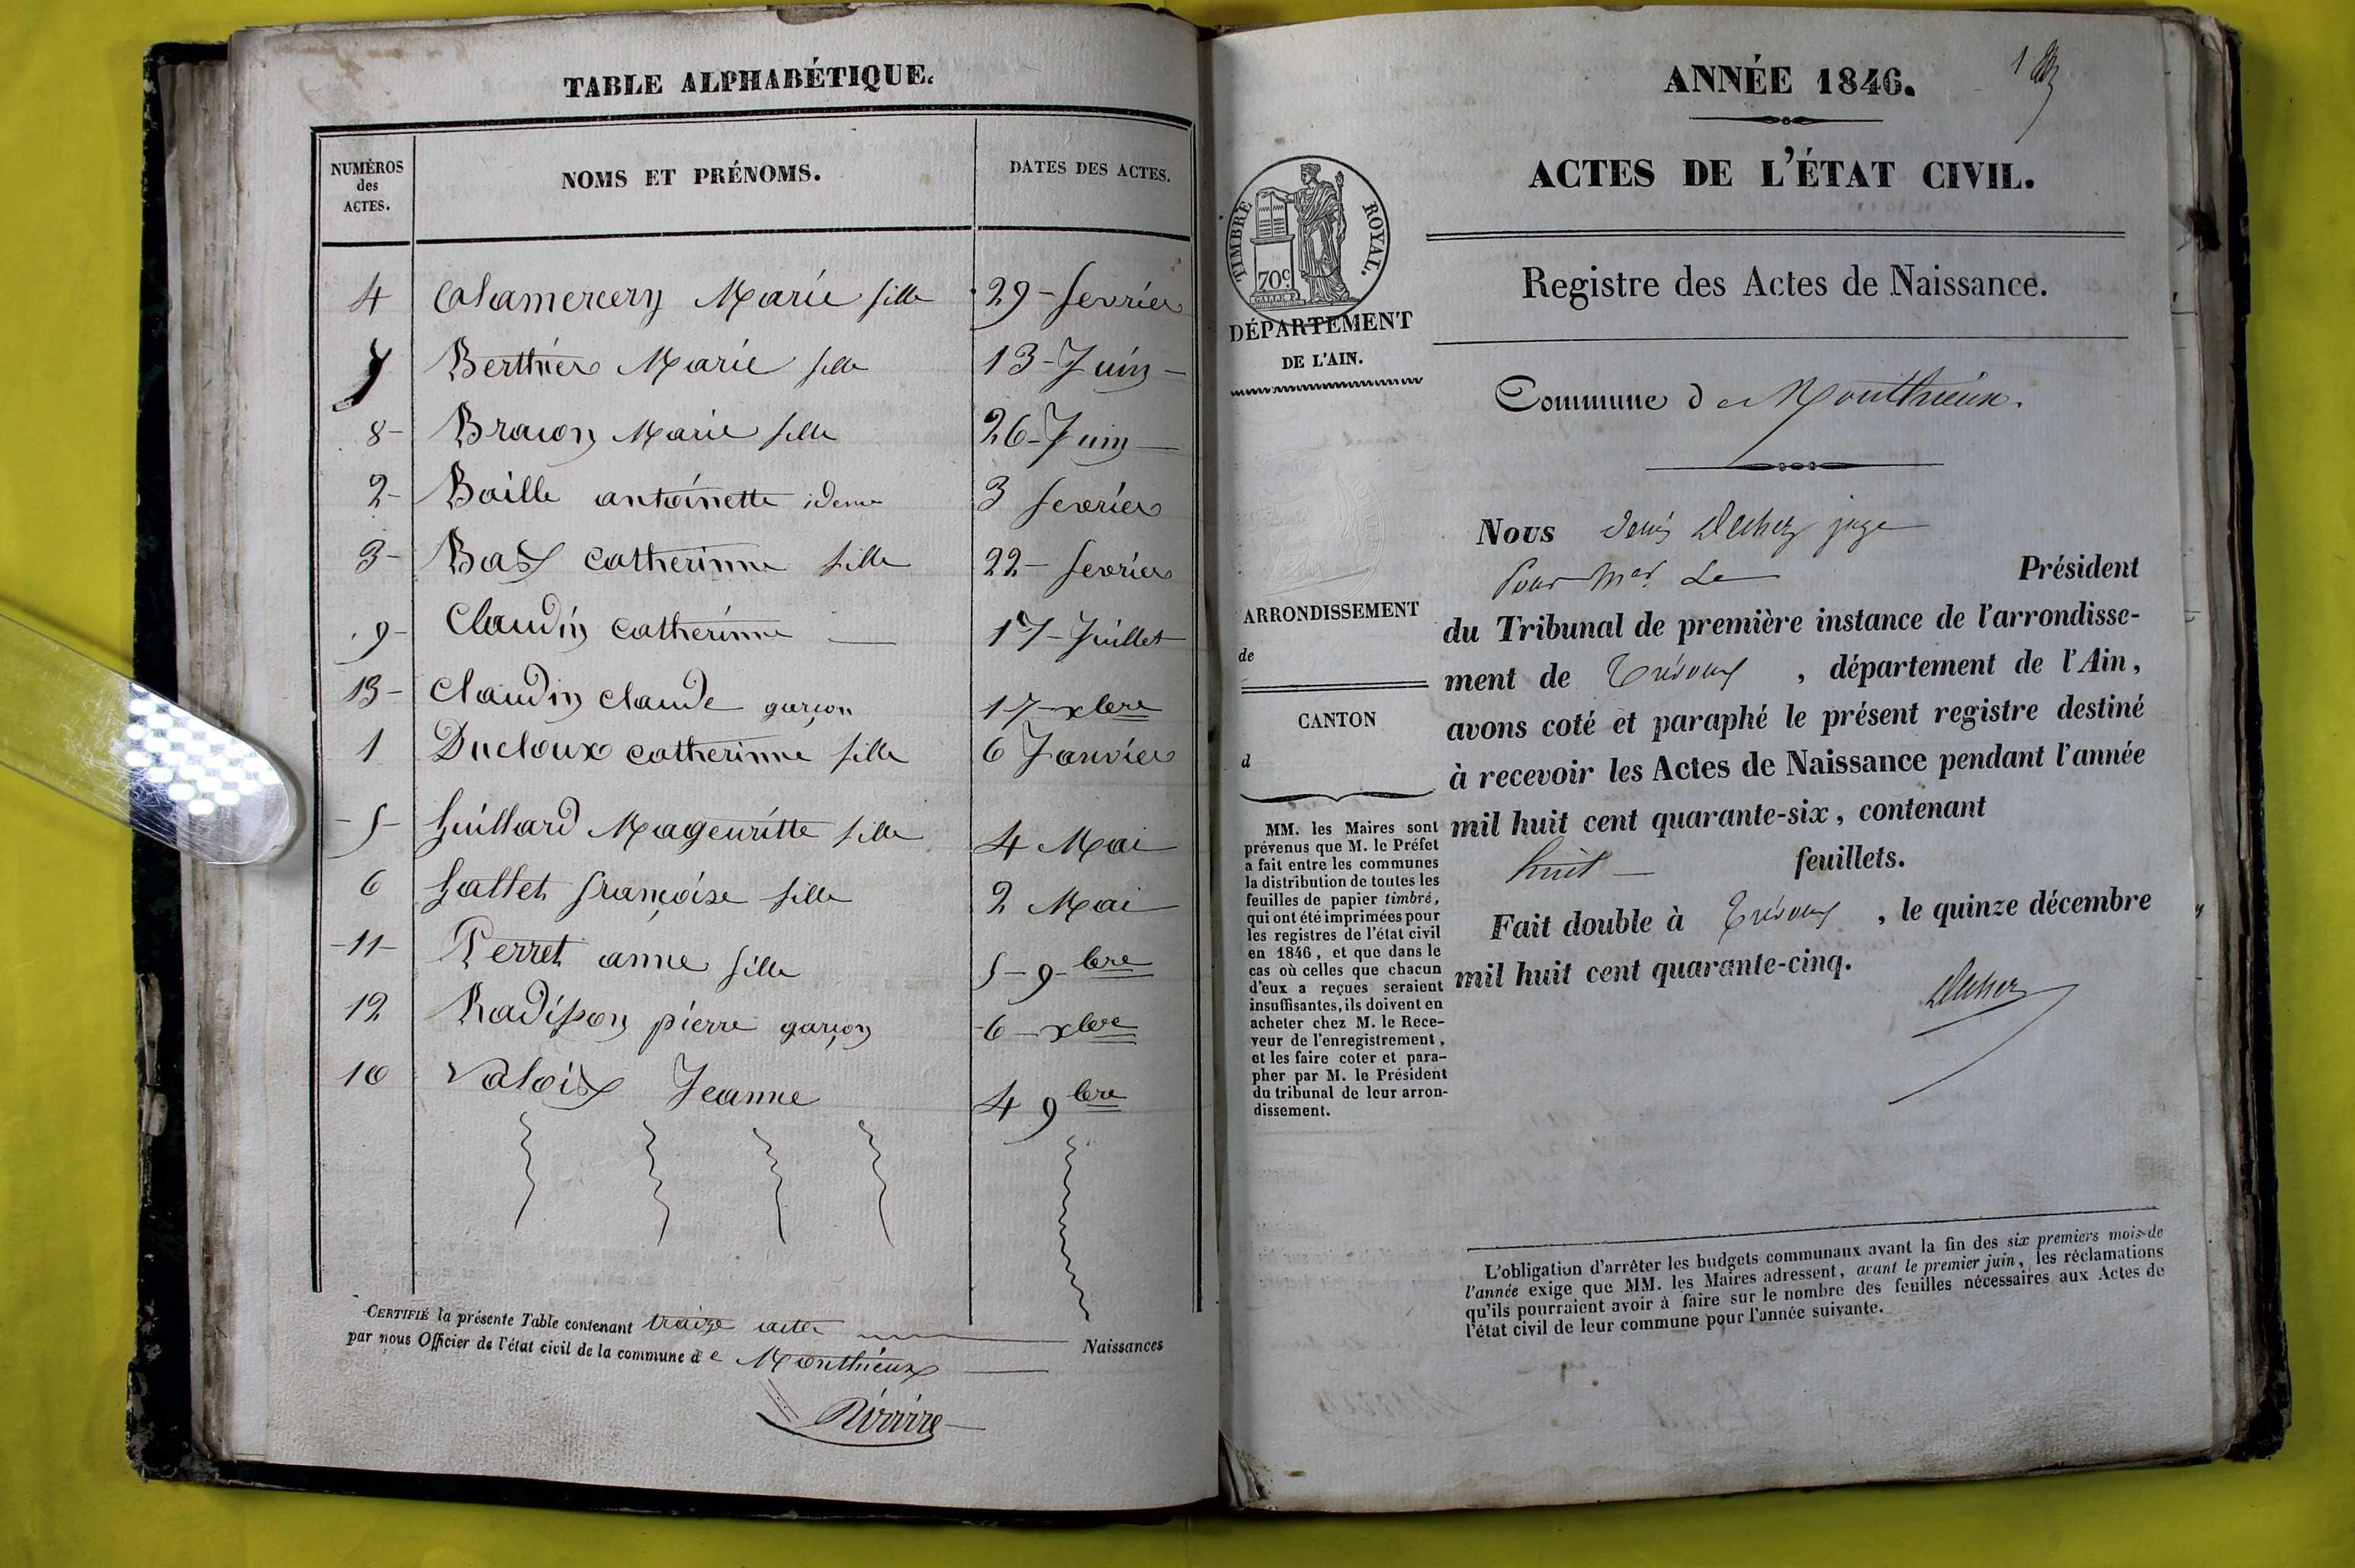 TABLE ALPHABÉTIQUE.
NUMÉROS
des
ACTES.
NOMS ET PRÉNOMS.
DATES DES ACTES.
4 Chamerery Marie fille 29 - fevrier
7 Berthier Marie fille 13 - Juin -
8 - Bracon Marie fille 26 - Juin
2 - Baille antoinette idem 3 fevrier
3 - Bax catherinne fille 22 - fevrier
9 - Claudin catherinne 17 - Juillet
13 - Claudin claude garçon 17 - xbre
1 Ducloux catherinne fille 6 Janvier
- 5 - Guillard Mageuritte fille 4 Mai
6 Gallet françoise fille 2 Mai
- 11 - Perret anne fille 5 - 9 - bre
12 Radisson pierre garçon - 6 - xbre
10 Valoix Jeanne 4 9 bre
CERTIFIÉ la présente Table contenant traize actes
Naissances
par nous Officier de l'état civil de la commune de Monthieux
1
ANNÉE 1846.
ACTES DE L'ÉTAT CIVIL.
Registre des Actes de Naissance.
TIMBRE ROYAL.
70c
DÉPARTEMENT
DE L'AIN.
ARRONDISSEMENT
de
CANTON
d
MM. les Maires sont
prévenus que M. le Préfet
a fait entre les communes
la distribution de toutes les
feuilles de papier timbré,
qui ont été imprimées pour
les registres de l'état civil
en 1846, et que dans le
cas où celles que chacun
d'eux a reçues seraient
insuffisantes, ils doivent en
acheter chez M. le Rece-
veur de l'enregistrement,
et les faire coter et para-
pher par M. le Président
du tribunal de leur arron-
dissement.
Commune de Monthieux.
Nous Denis juge
Pour Mr Le Président
du Tribunal de première instance de l'arrondisse-
ment de Trévoux, département de l'Ain,
avons coté et paraphé le présent registre destiné
à recevoir les Actes de Naissance pendant l'année
mil huit cent quarante-six, contenant
huit feuillets.
Fait double à Trévoux, le quinze décembre
mil huit cent quarante-cinq.
L'obligation d'arrêter les budgets communaux avant la fin des six premiers mois de
l'année exige que MM. les Maires adressent, avant le premier juin, les réclamations
qu'ils pourraient avoir à faire sur le nombre des feuilles nécessaires aux Actes de
l'état civil de leur commune pour l'année suivante.